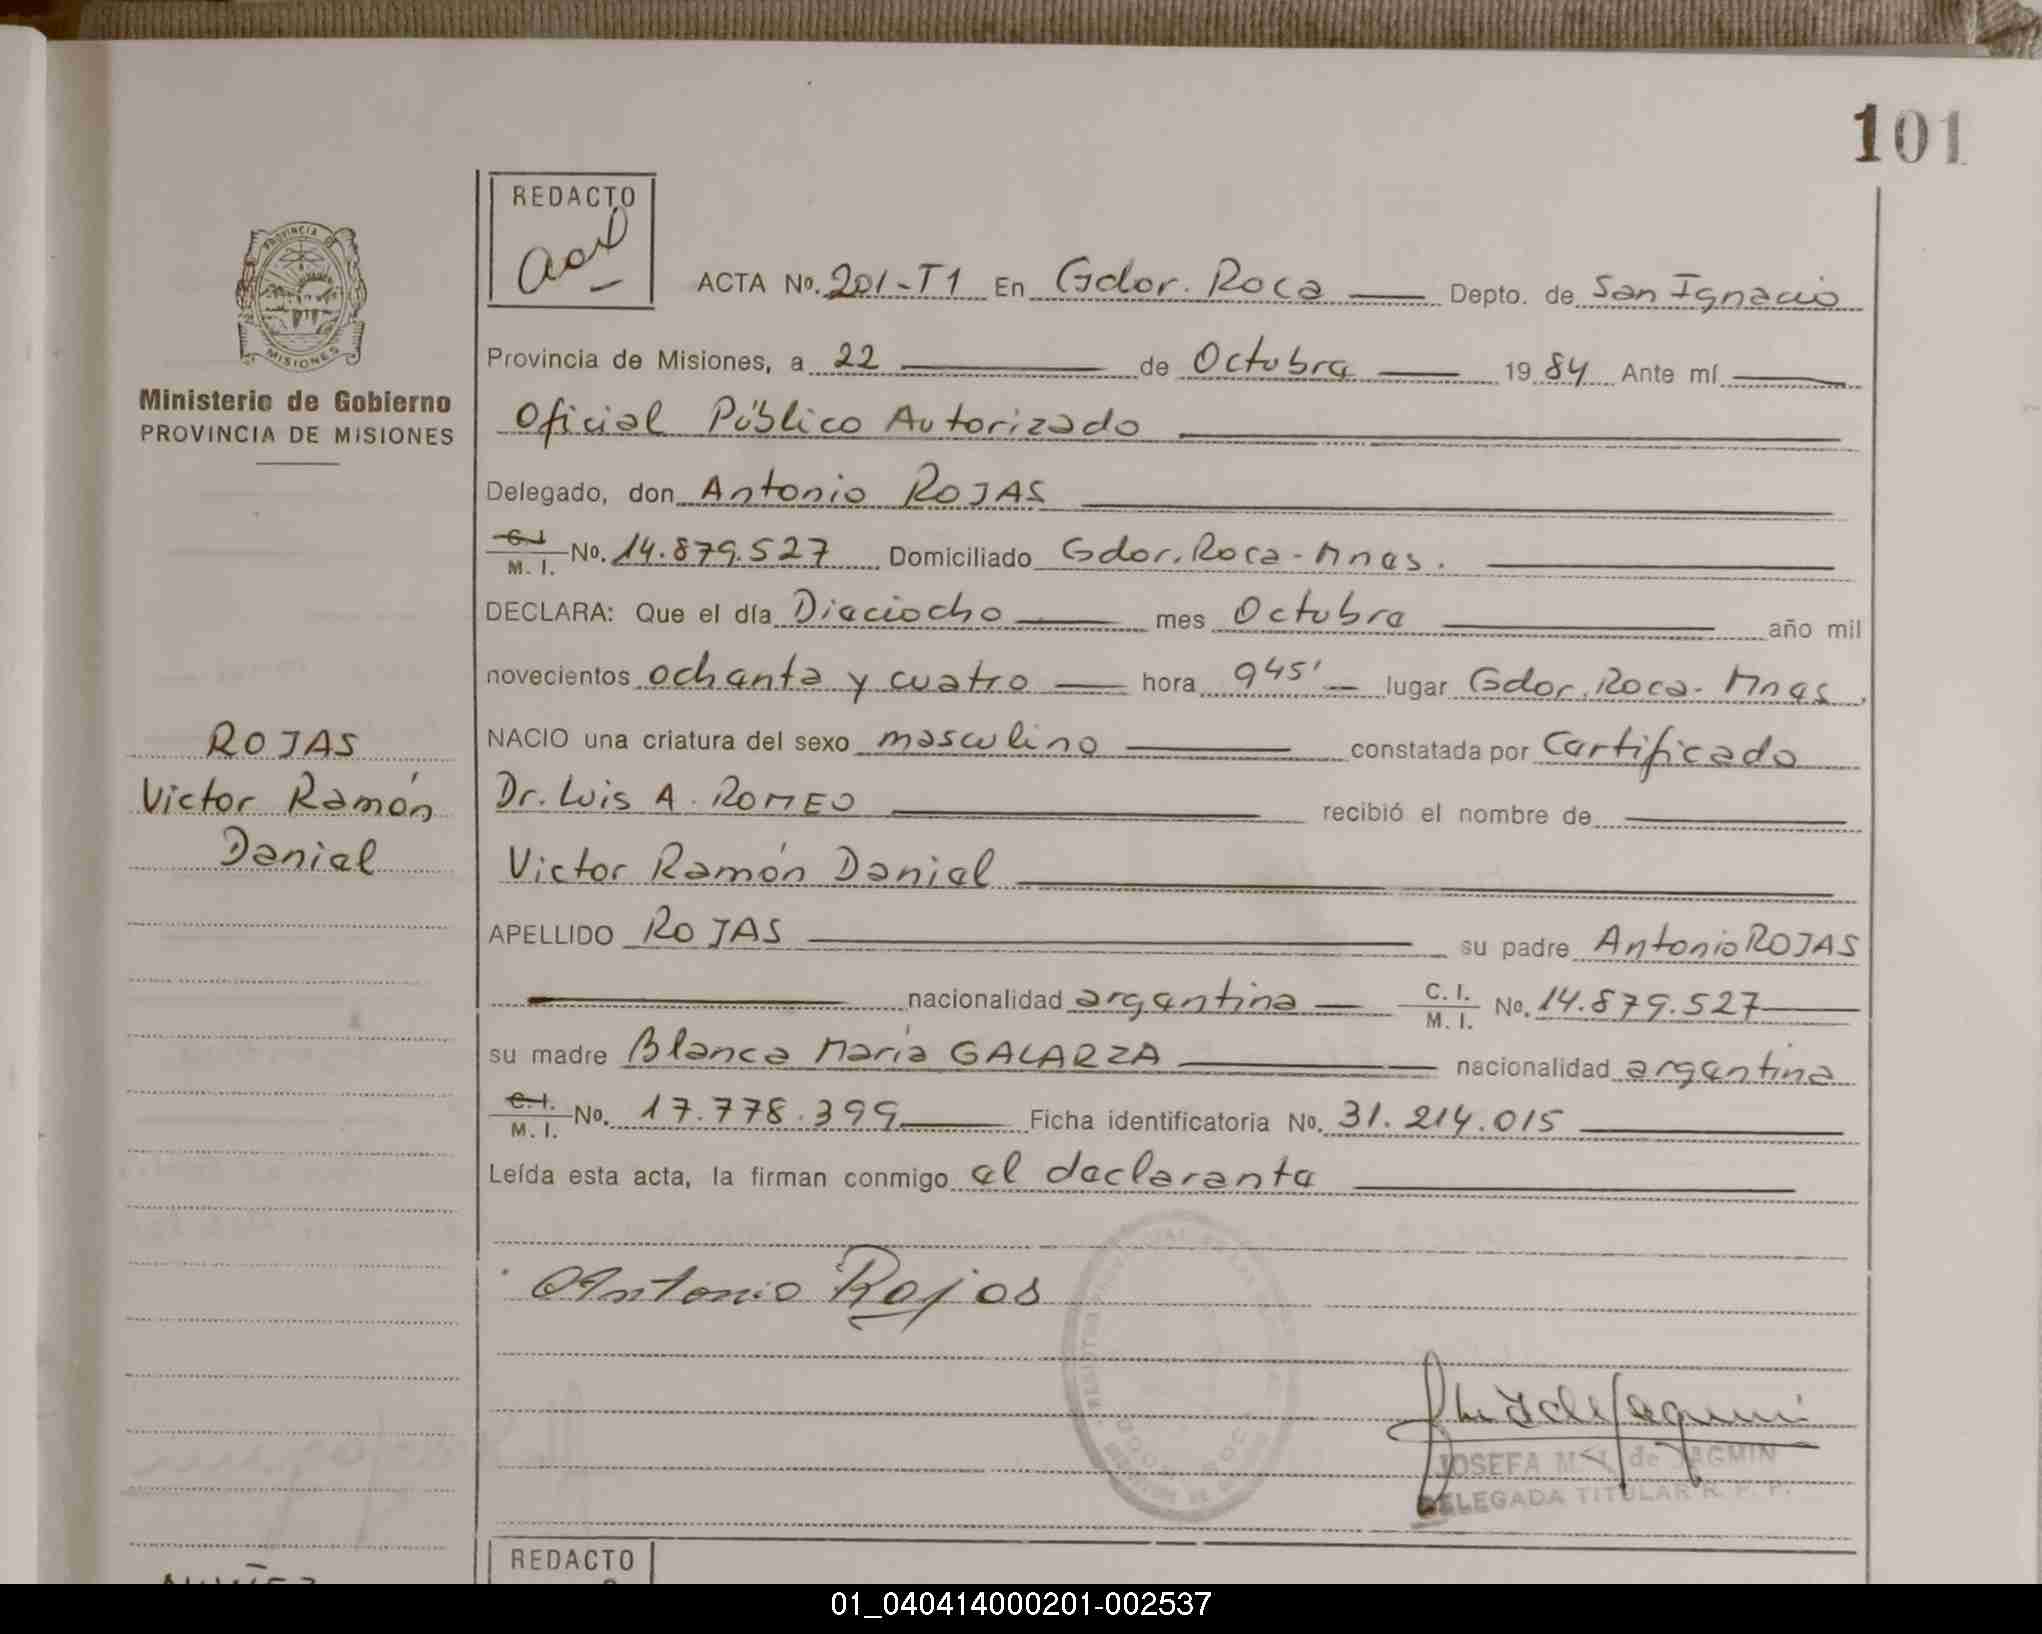 101
REDACTO
ACTA No. 201-T1 En Gdor. Roca Depto. de San Ignacio
Provincia de Misiones, a 22 de Octubre 1984 Ante mí
Oficial Público Autorizado
Delegado, don Antonio ROJAS
C.I. M. I. No. 14.879.527 Domiciliado Gdor. Roca - Mnes.
DECLARA: Que el día Dieciocho mes Octubre año mil
novecientos ochenta y cuatro hora 945' lugar Gdor. Roca - Mnes.
NACIO una criatura del sexo masculino constatada por Certificado
Dr. Luis A. ROMEO recibió el nombre de
Victor Ramón Daniel
APELLIDO ROJAS su padre Antonio ROJAS
nacionalidad argentina C. I. M. I. No. 14.879.527
su madre Blanca María GALARZA nacionalidad argentina
C. I. M. I. No. 17.778.399 Ficha identificatoria No. 31.214.015
Leída esta acta, la firman conmigo el declarante
Antonio Rojas
JOSEFA M. de JAGMIN
DELEGADA TITULAR R. P. P.
PROVINCIA DE
MISIONES
Ministerio de Gobierno
PROVINCIA DE MISIONES
ROJAS
Victor Ramón
Daniel
REDACTO
01_040414000201-002537